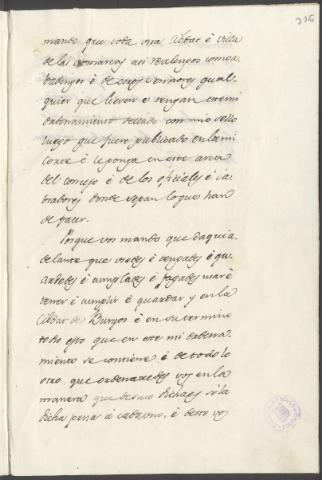 336
mando que toda una cibdat é villa
de las comarcas asi Realengos como a
badengos é de otros señores qual
quier que lieven o tengan en mi
ordenamiento sellado con mio sello
luego que fuere publicado en la mi
corte é le ponga en este arca
del concejo é de los oficiales é la
bradores donde sepan lo que han
de facer.
Porque vos mando que daqui a
delante que usedes é tengades é gu
ardedes é cumplades é fagades usar é
tener é cumplir é guardar y en la
Cibdat de Burgos é en su termino
todo esto que en este mi ordena
miento se contiene é de todo lo
otro que ordenaredes vos en la
manera que dicho so la
dicha pena á cada uno, é desto vos